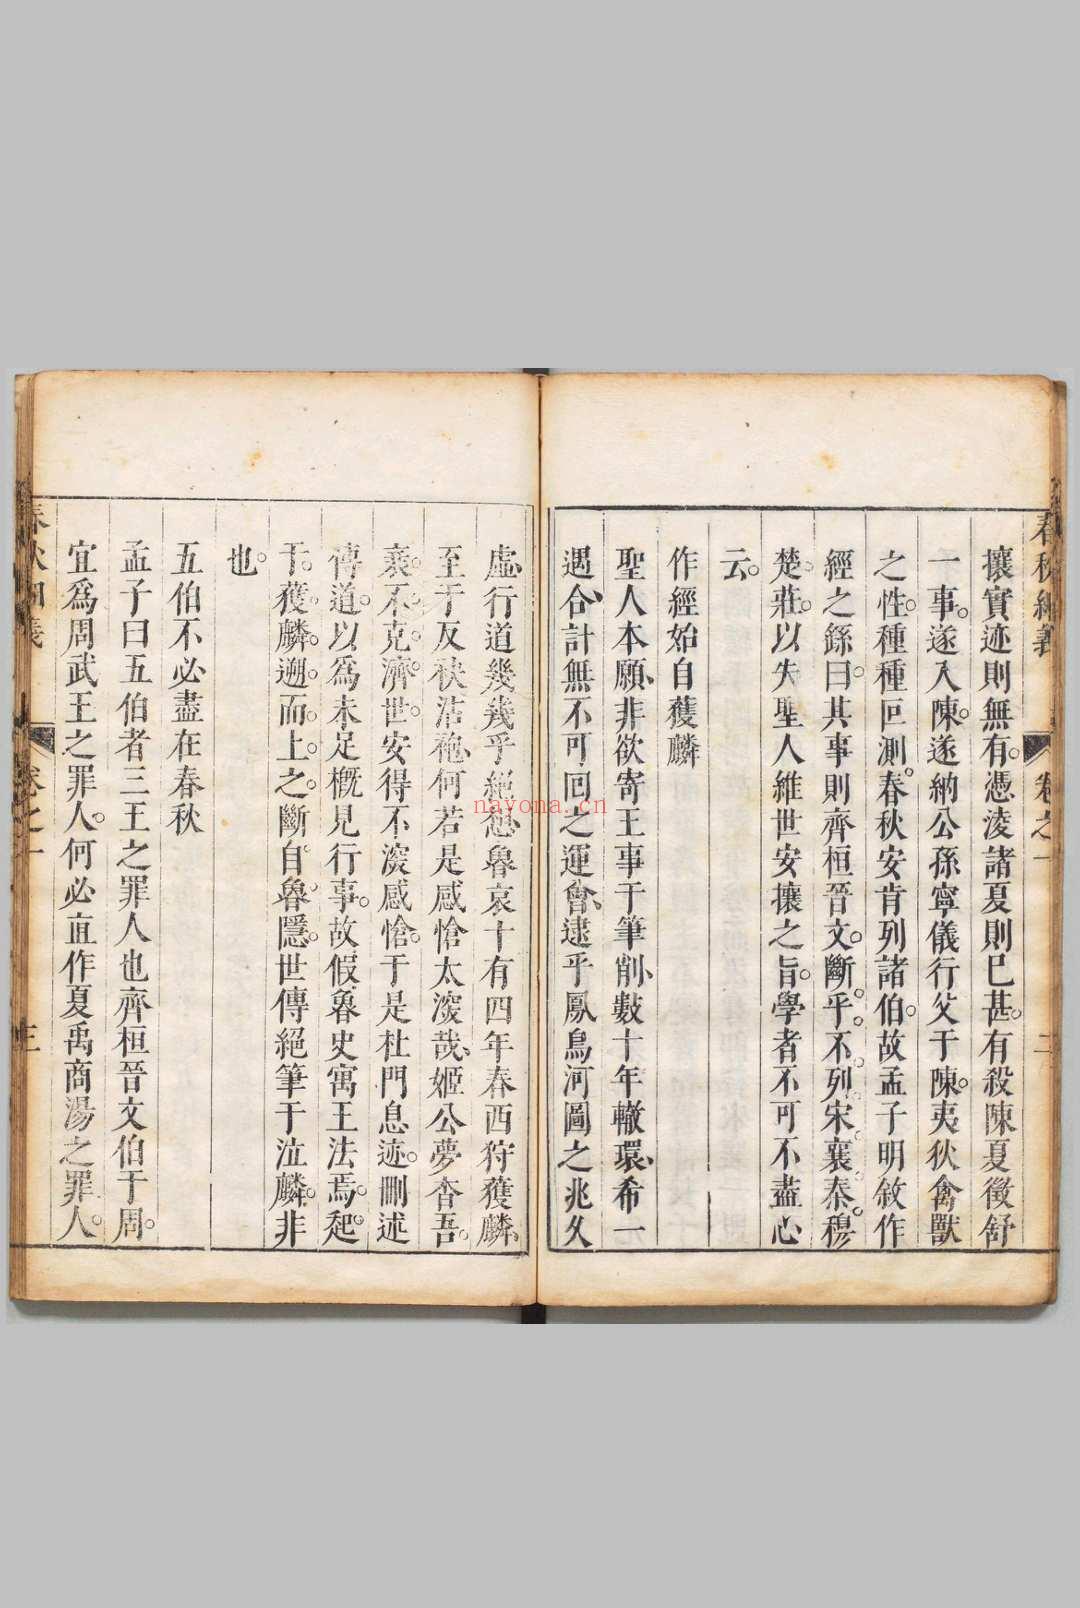 春秋細義 卷之一 二
攘實迹則無有。憑淩諸夏則已甚。有殺陳夏徵舒
一事。遂入陳。遂納公孫寧儀行父于陳。夷狄禽獸
之性。種種叵測。春秋安肯列諸伯。故孟子明敘作
經之繇。曰。其事則齊桓晉文。斷乎不列宋襄秦穆
楚莊。以失聖人維世安攘之旨。學者不可不盡心
云。
作經始自獲麟
聖人本願、非欲寄王事于筆削、數十年轍環、希一
遇合、計無不可回之運會、逮乎鳳鳥河圖之兆久
虛、行道幾幾乎絕想、魯哀十有四年春西狩獲麟、
至于反袂沾袍、何若是感愴太深哉、姬公夢杳、吾
衰不克濟世。安得不深感愴。于是杜門息迹。刪述
傳道。以爲未足概見行事。故假魯史寓王法焉。起
于獲麟。遡而上之。斷自魯隱。世傳絕筆于泣麟。非
也。
五伯不必盡在春秋
孟子曰五伯者三王之罪人也齊桓晉文伯于周。
宜爲周武王之罪人。何必直作夏禹商湯之罪人。
春秋細義 卷之一 三
nayona.cn